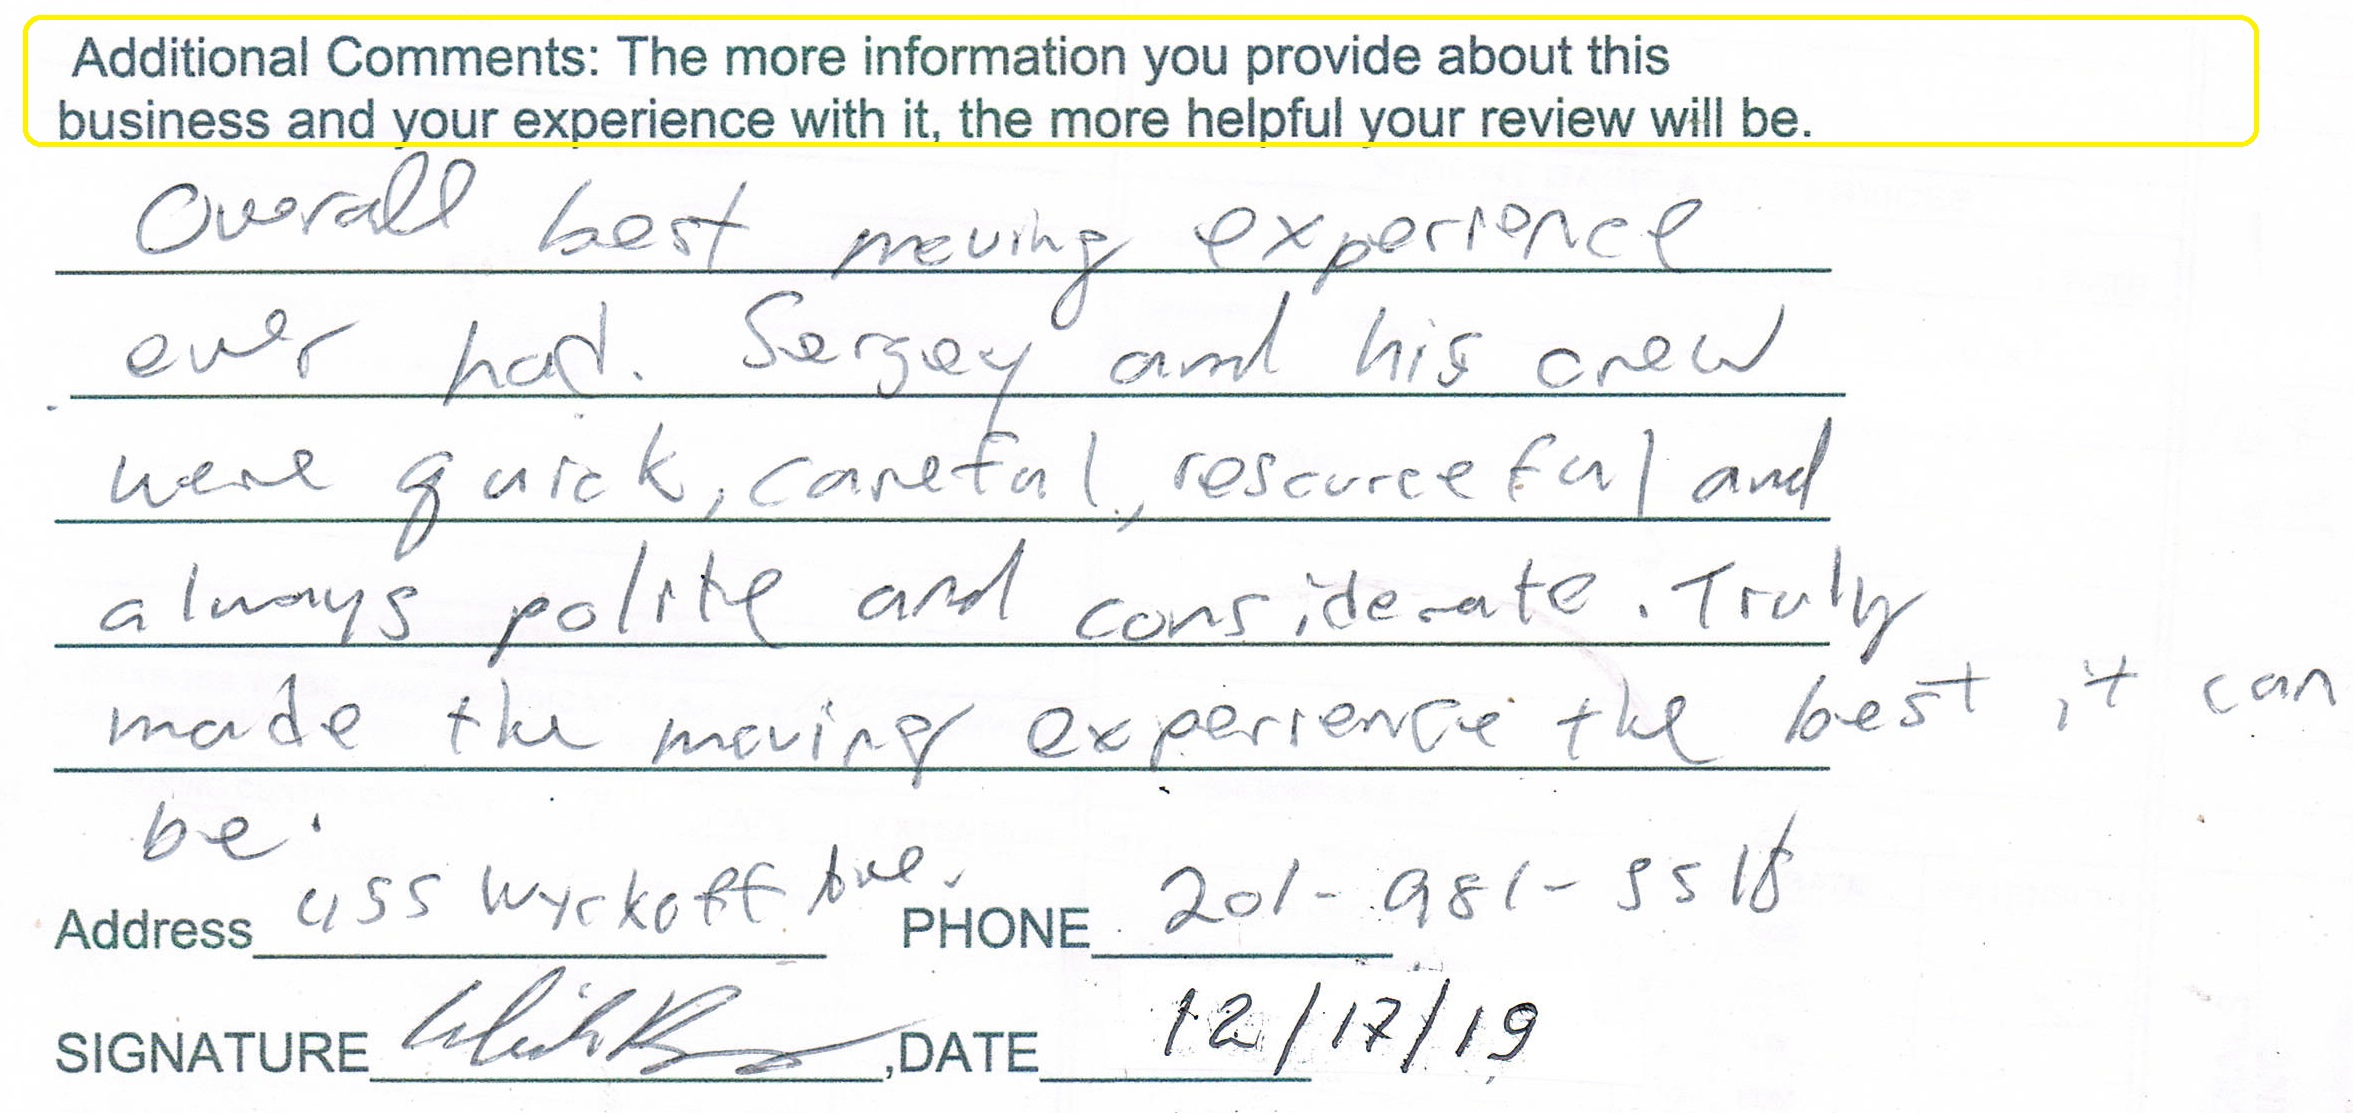 Additional Comments: The more information you provide about this
business and your experience with it, the more helpful your review will be.
Overall best moving experience
ever had. Sergey and his crew
were quick, careful, resourceful and
always polite and considerate. Truly
made the moving experience the best it can
be.
Address 455 Wyckoff Ave. PHONE 201-981-5518
SIGNATURE ,DATE 12/17/19